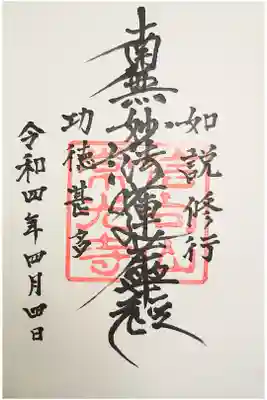 如説修行
南無妙法蓮華経
功徳甚多
令和四年四月四日